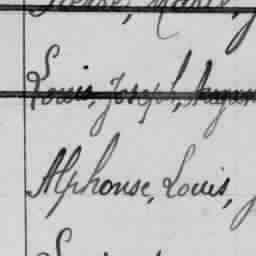 Pierre, Marie,
Louis, Joseph, Augus
Alphonse, Louis,